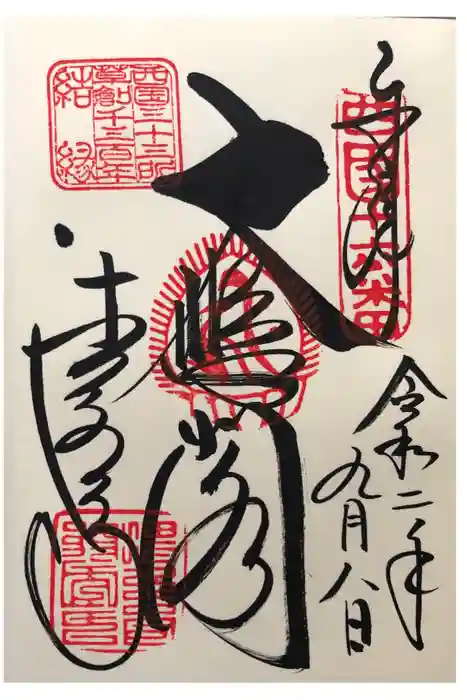 奉拝
西国十六番
令和二年
九月八日
大悲閣
清水寺
西国三十三所
草創千三百年
結縁